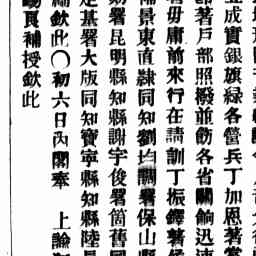 成實銀旗綠各營兵丁加恩著賞
部著戶部照撥並飭各省關餉迅速
著毋庸前來行在請訓丁振鐸著
補景東直隸同知劉均調署保山縣
署昆明縣知縣謝宇俊署箇舊
定基署大版同知寶寧縣知縣陸
欽此〇初六日內閣奉　上諭
錫良補授欽此